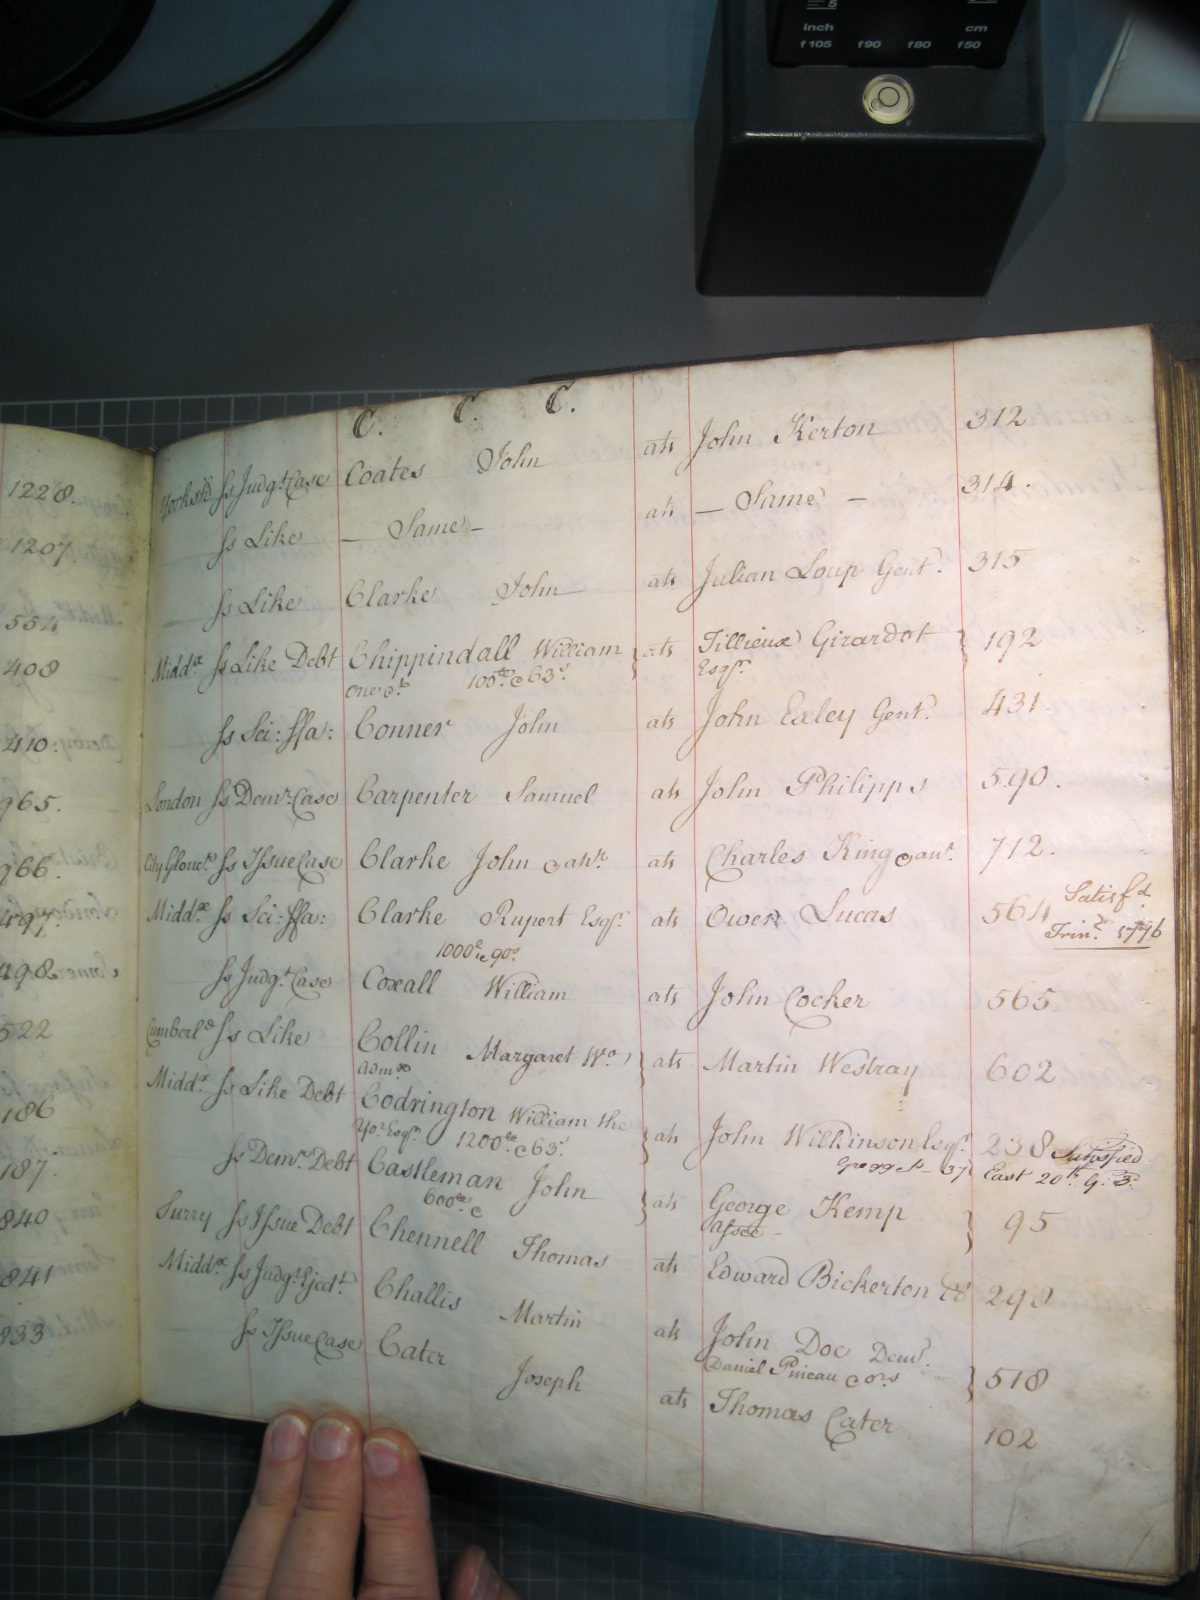 inch cm
f105 f90 f80 f50
PHILIPS
C. C. C.
1228.
1207
554
408
410.
965.
966.
497.
498.
522
186
187.
840
841
833
Yorksh. Ss Judgt. Case Coates John ats John Kerton 312
Ss Like — Same — ats — Same — 314.
Ss Like Clarke John ats Julian Loup Gent. 315
Middx. Ss Like Debt Chippindall William } ats Tillieux Girardot } 192
One &c. 100£ & 63s. Esqr.
Ss Sci: ffa: Conner John ats John Exley Gent. 431.
London Ss Demr. Case Carpenter Samuel ats John Philipps 590.
City Glouc. Ss Issue Case Clarke John & anr. ats Charles King & anr. 712.
Middx. Ss Sci: ffa: Clarke Rupert Esqr. ats Owen Lucas 564 Satisfd.
1000£ & 90s. Trin. 1776
Ss Judgt. Case Coxall William ats John Cocker 565
Cumberld. Ss Like Collin Margaret Wo. } ats Martin Westray 602
Admx.
Middx. Ss Like Debt Codrington William the } ats John Wilkinson Esqr. 238 Satisfied
Yor. Esqr. 1200£ & 63s. 37 East 20th. G. 3.
Ss Demr. Debt Castleman John } ats George Kemp } 95
600£ & Assee
Surry Ss Issue Debt Chennell Thomas ats Edward Bickerton &c 298
Middx. Ss Judgt. Eject. Challis Martin ats John Doe Dem. } 518
Daniel Pineau & ors
Ss Issue Case Cater Joseph ats Thomas Cater 102